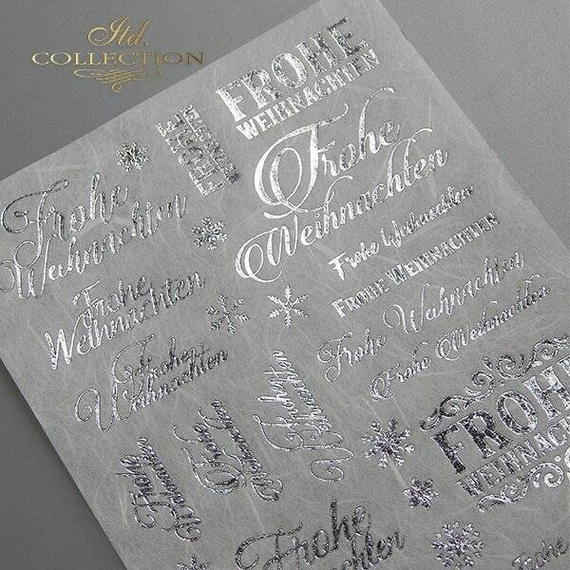 Itd.
COLLECTION
FROHE
WEIHNACHTEN
FROHE
WEIHNACHTEN
Frohe
Weihnachten
Frohe
Weihnachten
Frohe Weihnachten
FROHE WEIHNACHTEN
Frohe
Weihnachten
Frohe Weihnachten
Frohe Weihnachten
Frohe
Weihnachten
Frohe
Weihnachten
Frohe
Weihnachten
Frohe
Weihnachten
FROHE
WEIHNACHTEN
Frohe
Weihnachten
Frohe